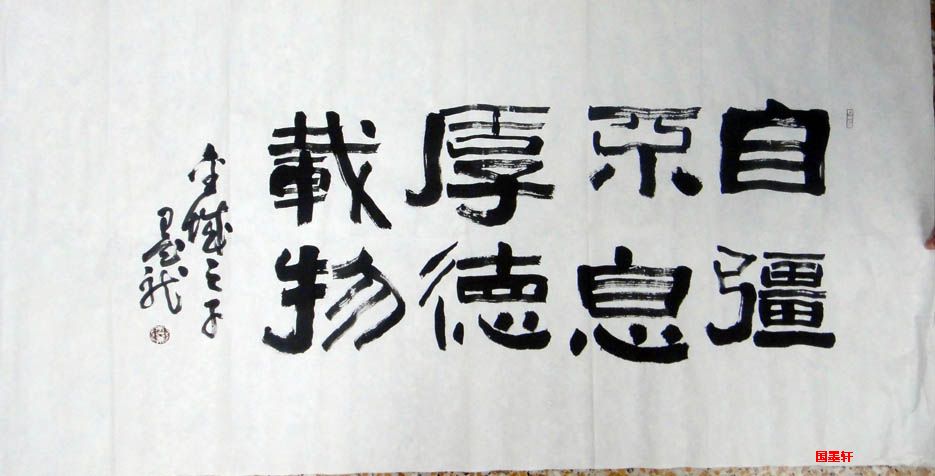 自彊
不息
厚德
載物
之子
墨龍
国墨轩